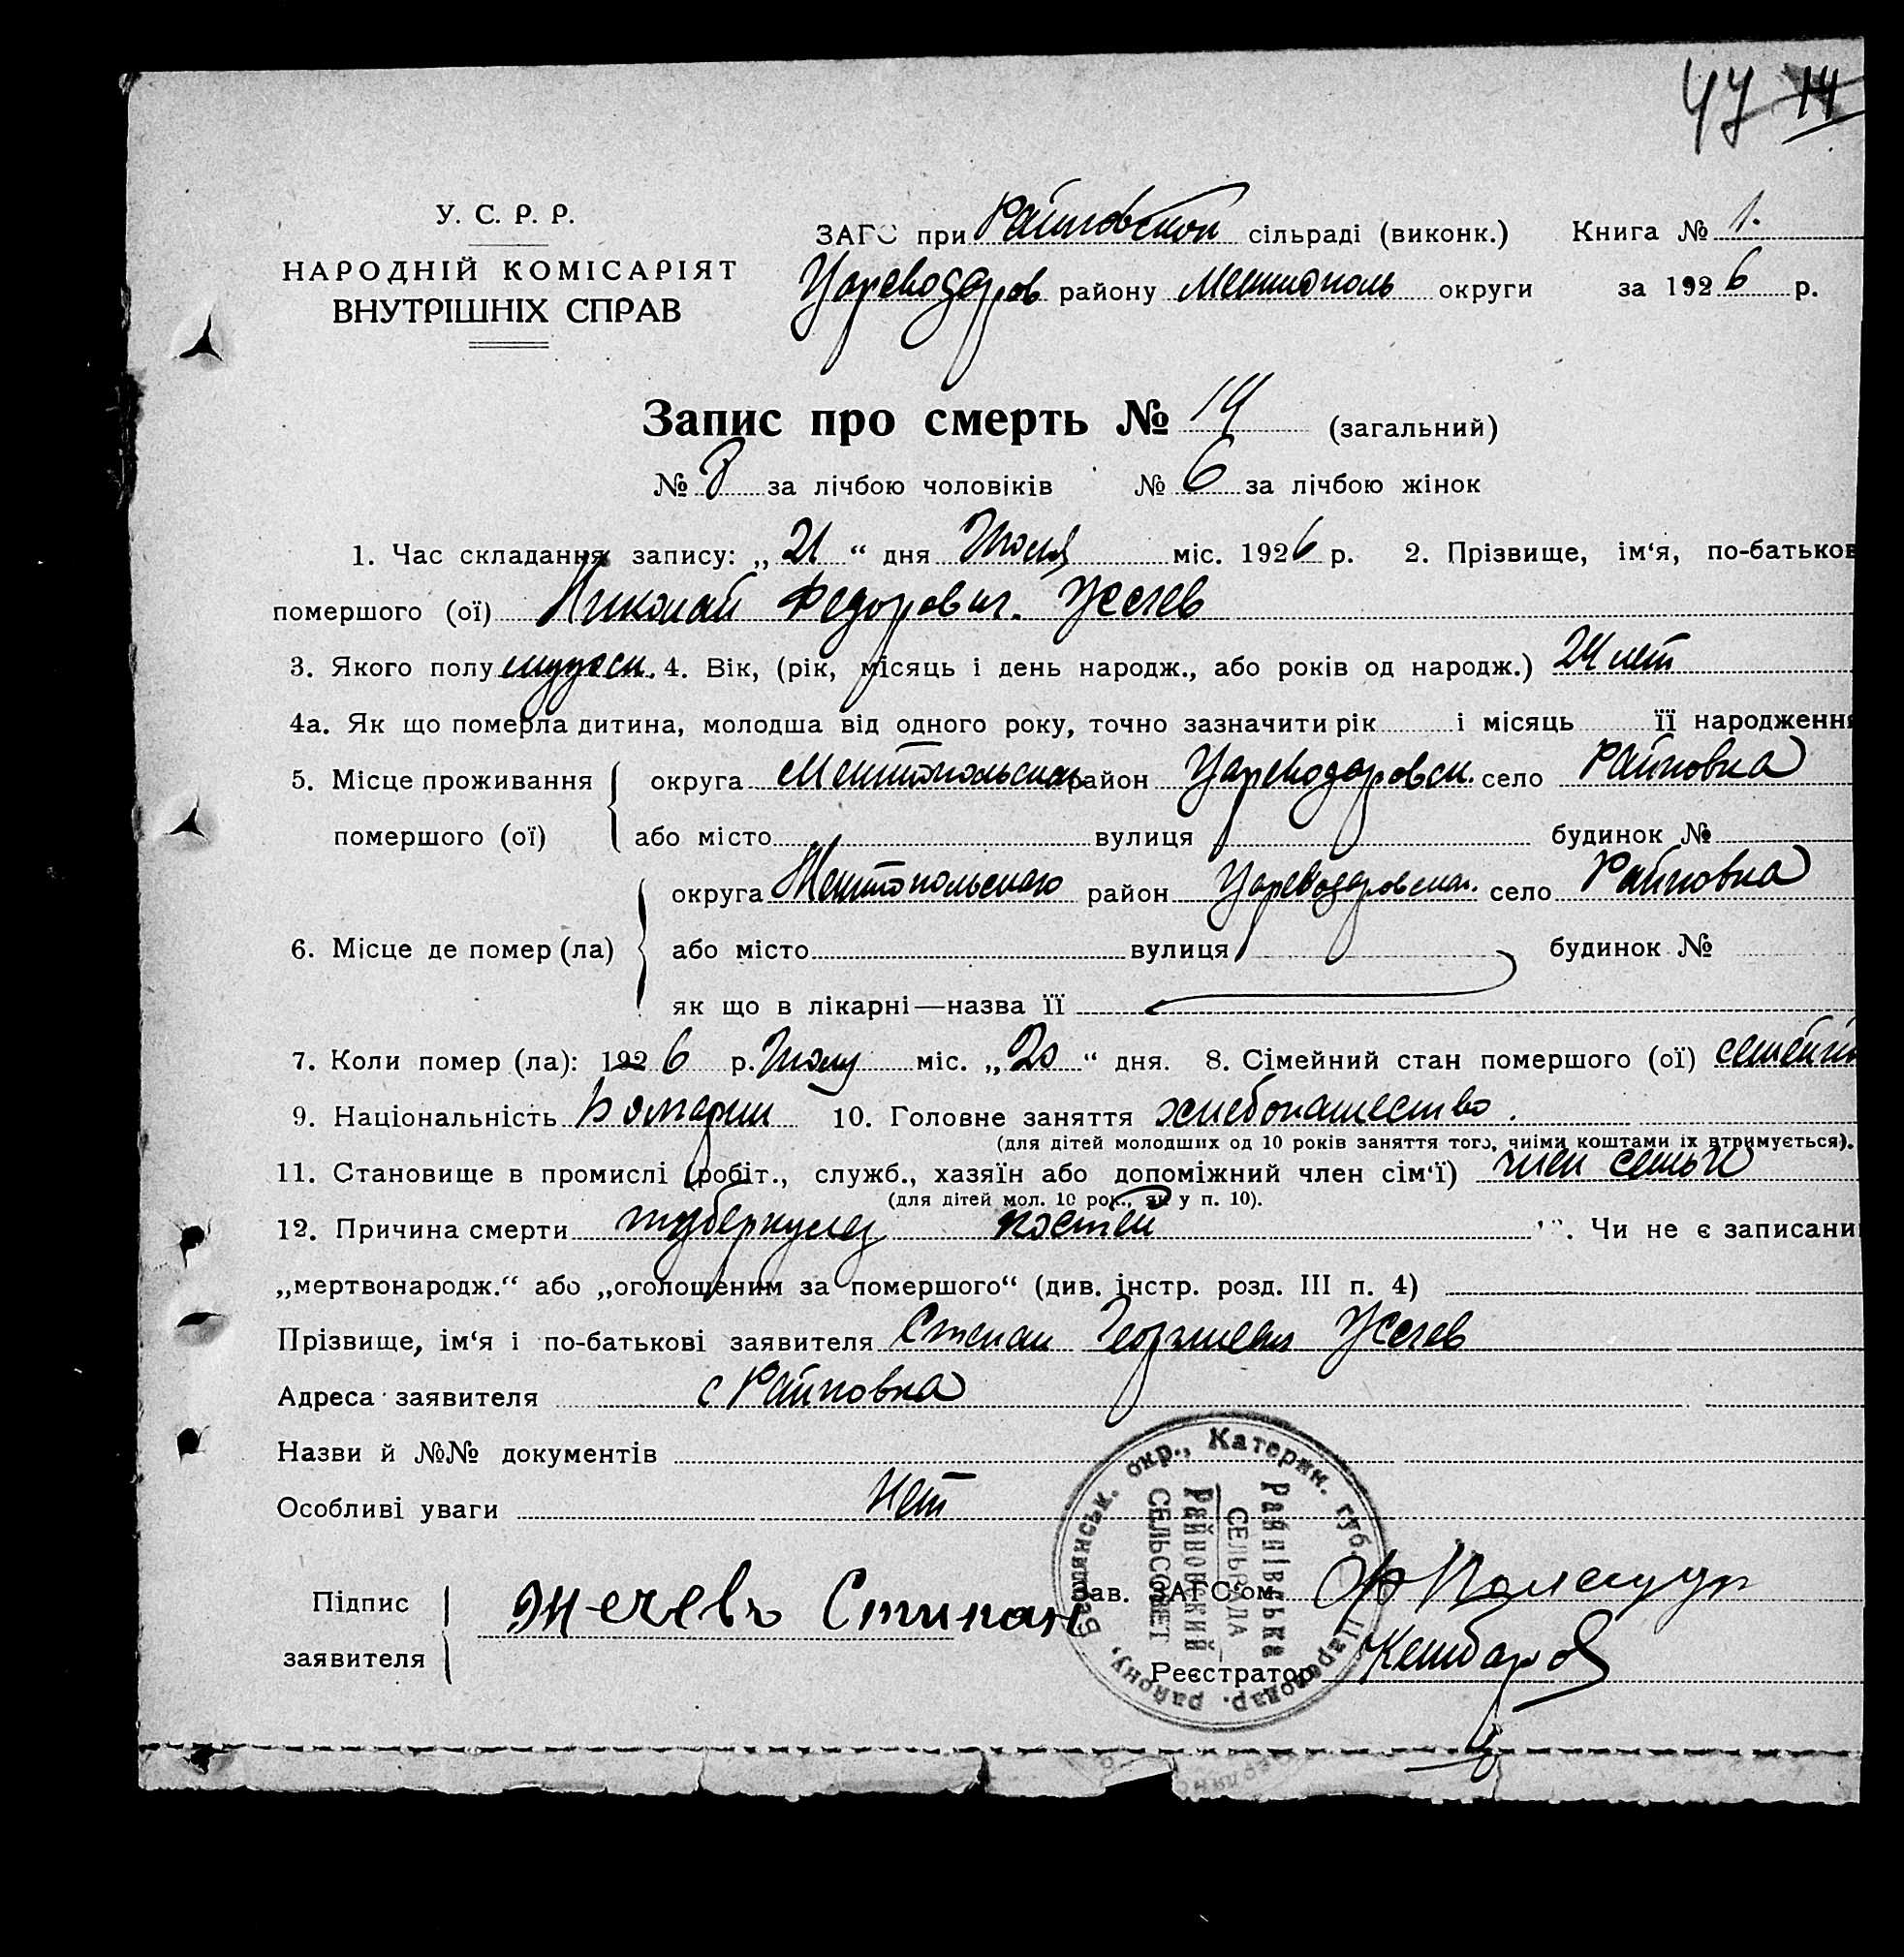 47 14
У. С. Р. Р.
НАРОДНІЙ КОМІСАРІЯТ
ВНУТРІШНІХ СПРАВ
ЗАГС при Райновской сільраді (виконк.) Книга № 1.
Цареводаров району Мелитополь округи за 1926 р.
Запис про смерть № 14 (загальний)
№ 8 за лічбою чоловіків № 6 за лічбою жінок
1. Час складання запису: „21“ дня Июля міс. 1926 р. 2. Прізвище, ім‘я, по-батьков
помершого (ої) Николай Федорович Жечев
3. Якого полу мужеск. 4. Вік, (рік, місяць і день народж., або років од народж.) 24 лет
4а. Як що померла дитина, молодша від одного року, точно зазначити рік і місяць її народження
5. Місце проживання округа Мелитопольск район Цареводаровск. село Райновка
помершого (ої) або місто вулиця будинок №
округа Мелитопольского район Цареводаровског. село Райновка
6. Місце де помер (ла) або місто вулиця будинок №
як що в лікарні—назва її
7. Коли помер (ла): 1926 р. Июля міс. „20“ дня. 8. Сімейний стан помершого (ої) семейны
9. Національність Болгарин 10. Головне заняття хлебопашество.
(для дітей молодших од 10 років заняття того, чиїми коштами їх втримується).
11. Становище в промислі (робіт., служб., хазяїн або допоміжний член сім‘ї) член семьи
(для дітей мол. 10 рок., як у п. 10).
12. Причина смерти туберкулез костей . Чи не є записани
„мертвонародж.“ або „оголошеним за помершого“ (див. інстр. розд. III п. 4)
Прізвище, ім‘я і по-батькові заявителя Степан Георгиевич Жечев
Адреса заявителя с Райновка
Назви й №№ документів
Особливі уваги Нет
Бердянськ. окр., Катерин. губ. Цареводар. району,
Райнівська
СЕЛЬРАДА
Райновский
СЕЛЬСОВЕТ
Підпис Жечевъ Стипан Зав. ЗАГС‘ом
заявителя Реєстратор